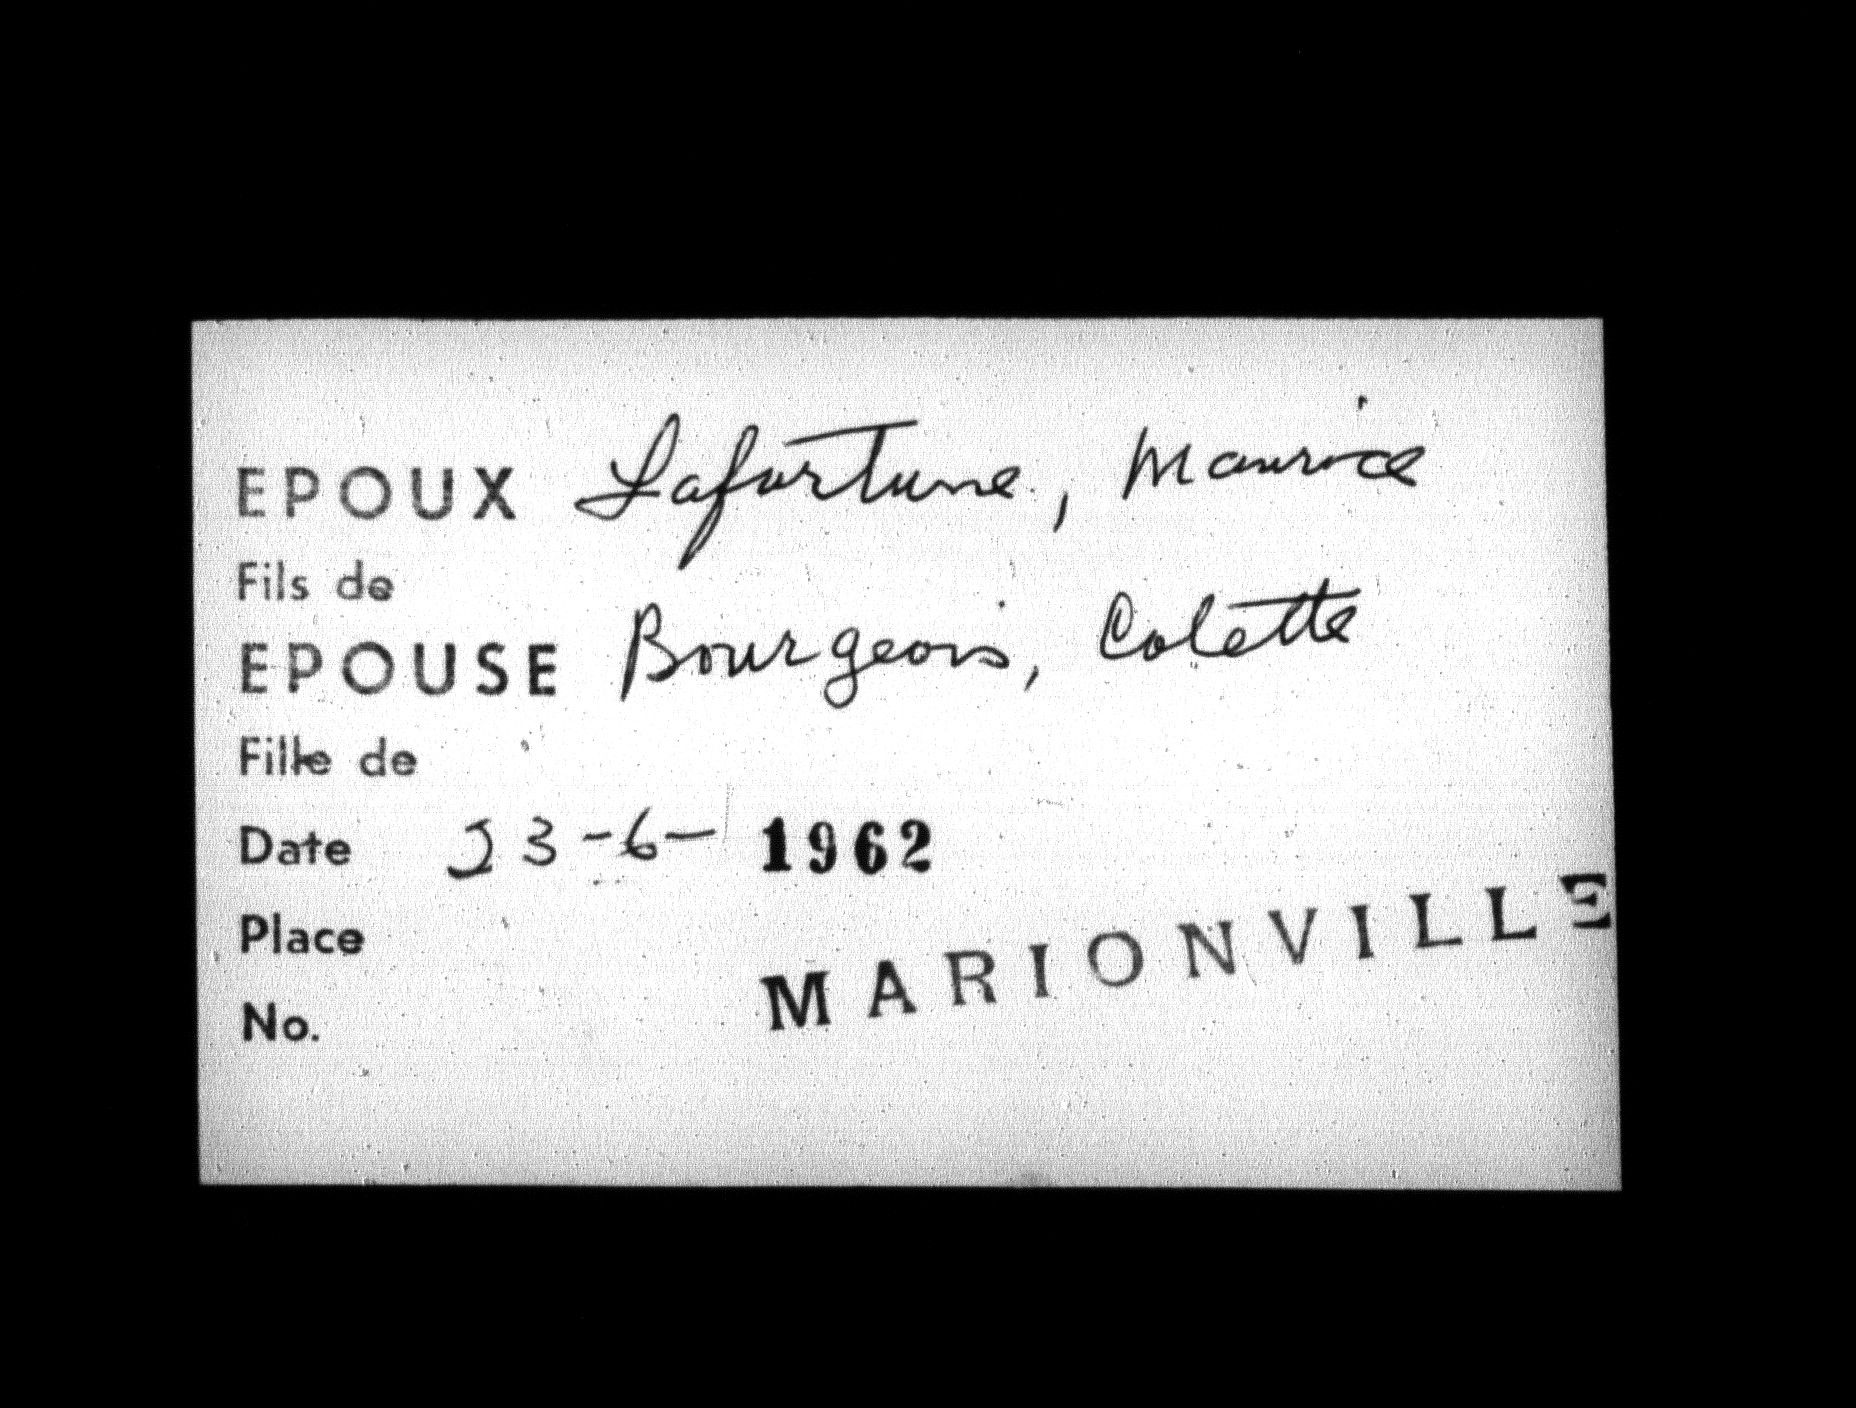 EPOUX Lafortune, Maurice
Fils de
EPOUSE Bourgeois, Colette
Fille de
Date 23-6-1962
Place MARIONVILLE
No.